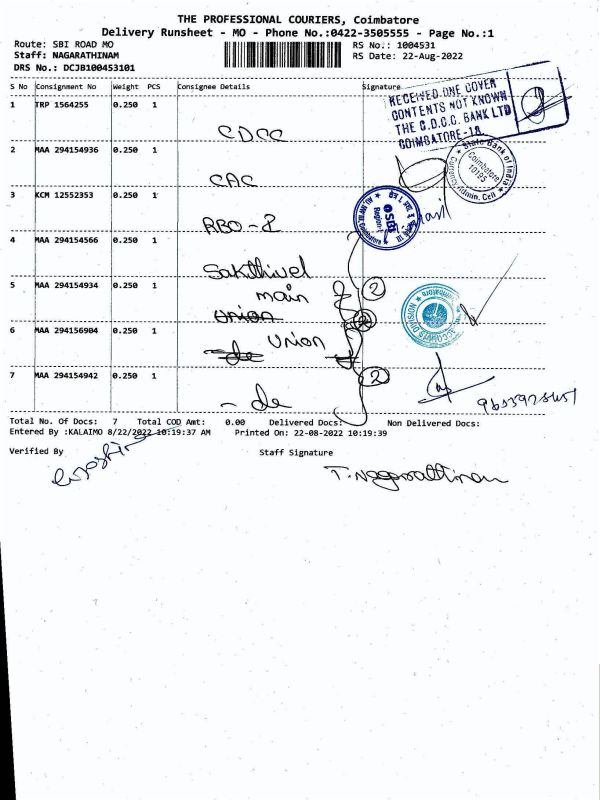 THE PROFESSIONAL COURIERS, Coimbatore
Delivery Runsheet - MO - Phone No.:0422-3505555 - Page No.:1
Route: SBI ROAD MO
RS No.: 1004531
Staff: NAGARATHINAM
RS Date: 22-Aug-2022
DRS No.: DCJB100453101
S No Consignment No Weight PCS Consignee Details Signature
RECEIVED ONE COVER
CONTENTS NOT KNOWN
THE C.D.C.C. BANK LTD
COIMBATORE-18.
1 TRP 1564255 0.250 1
CDCC
2 MAA 294154936 0.250 1
CAC
State Bank of India
Coimbatore
Currency Admin. Cell
3 KCM 12552353 0.250 1
RBO-2
SBI
4 MAA 294154566 0.250 1
Sakthivel
5 MAA 294154934 0.250 1
main 2
Union
6 MAA 294156904 0.250 1
Union
7 MAA 294154942 0.250 1
2
- do
Total No. Of Docs: 7 Total COD Amt: 0.00 Delivered Docs: Non Delivered Docs:
Entered By :KALAIMO 8/22/2022 10:19:37 AM Printed On: 22-08-2022 10:19:39
Verified By Staff Signature
T. Nagarathinam